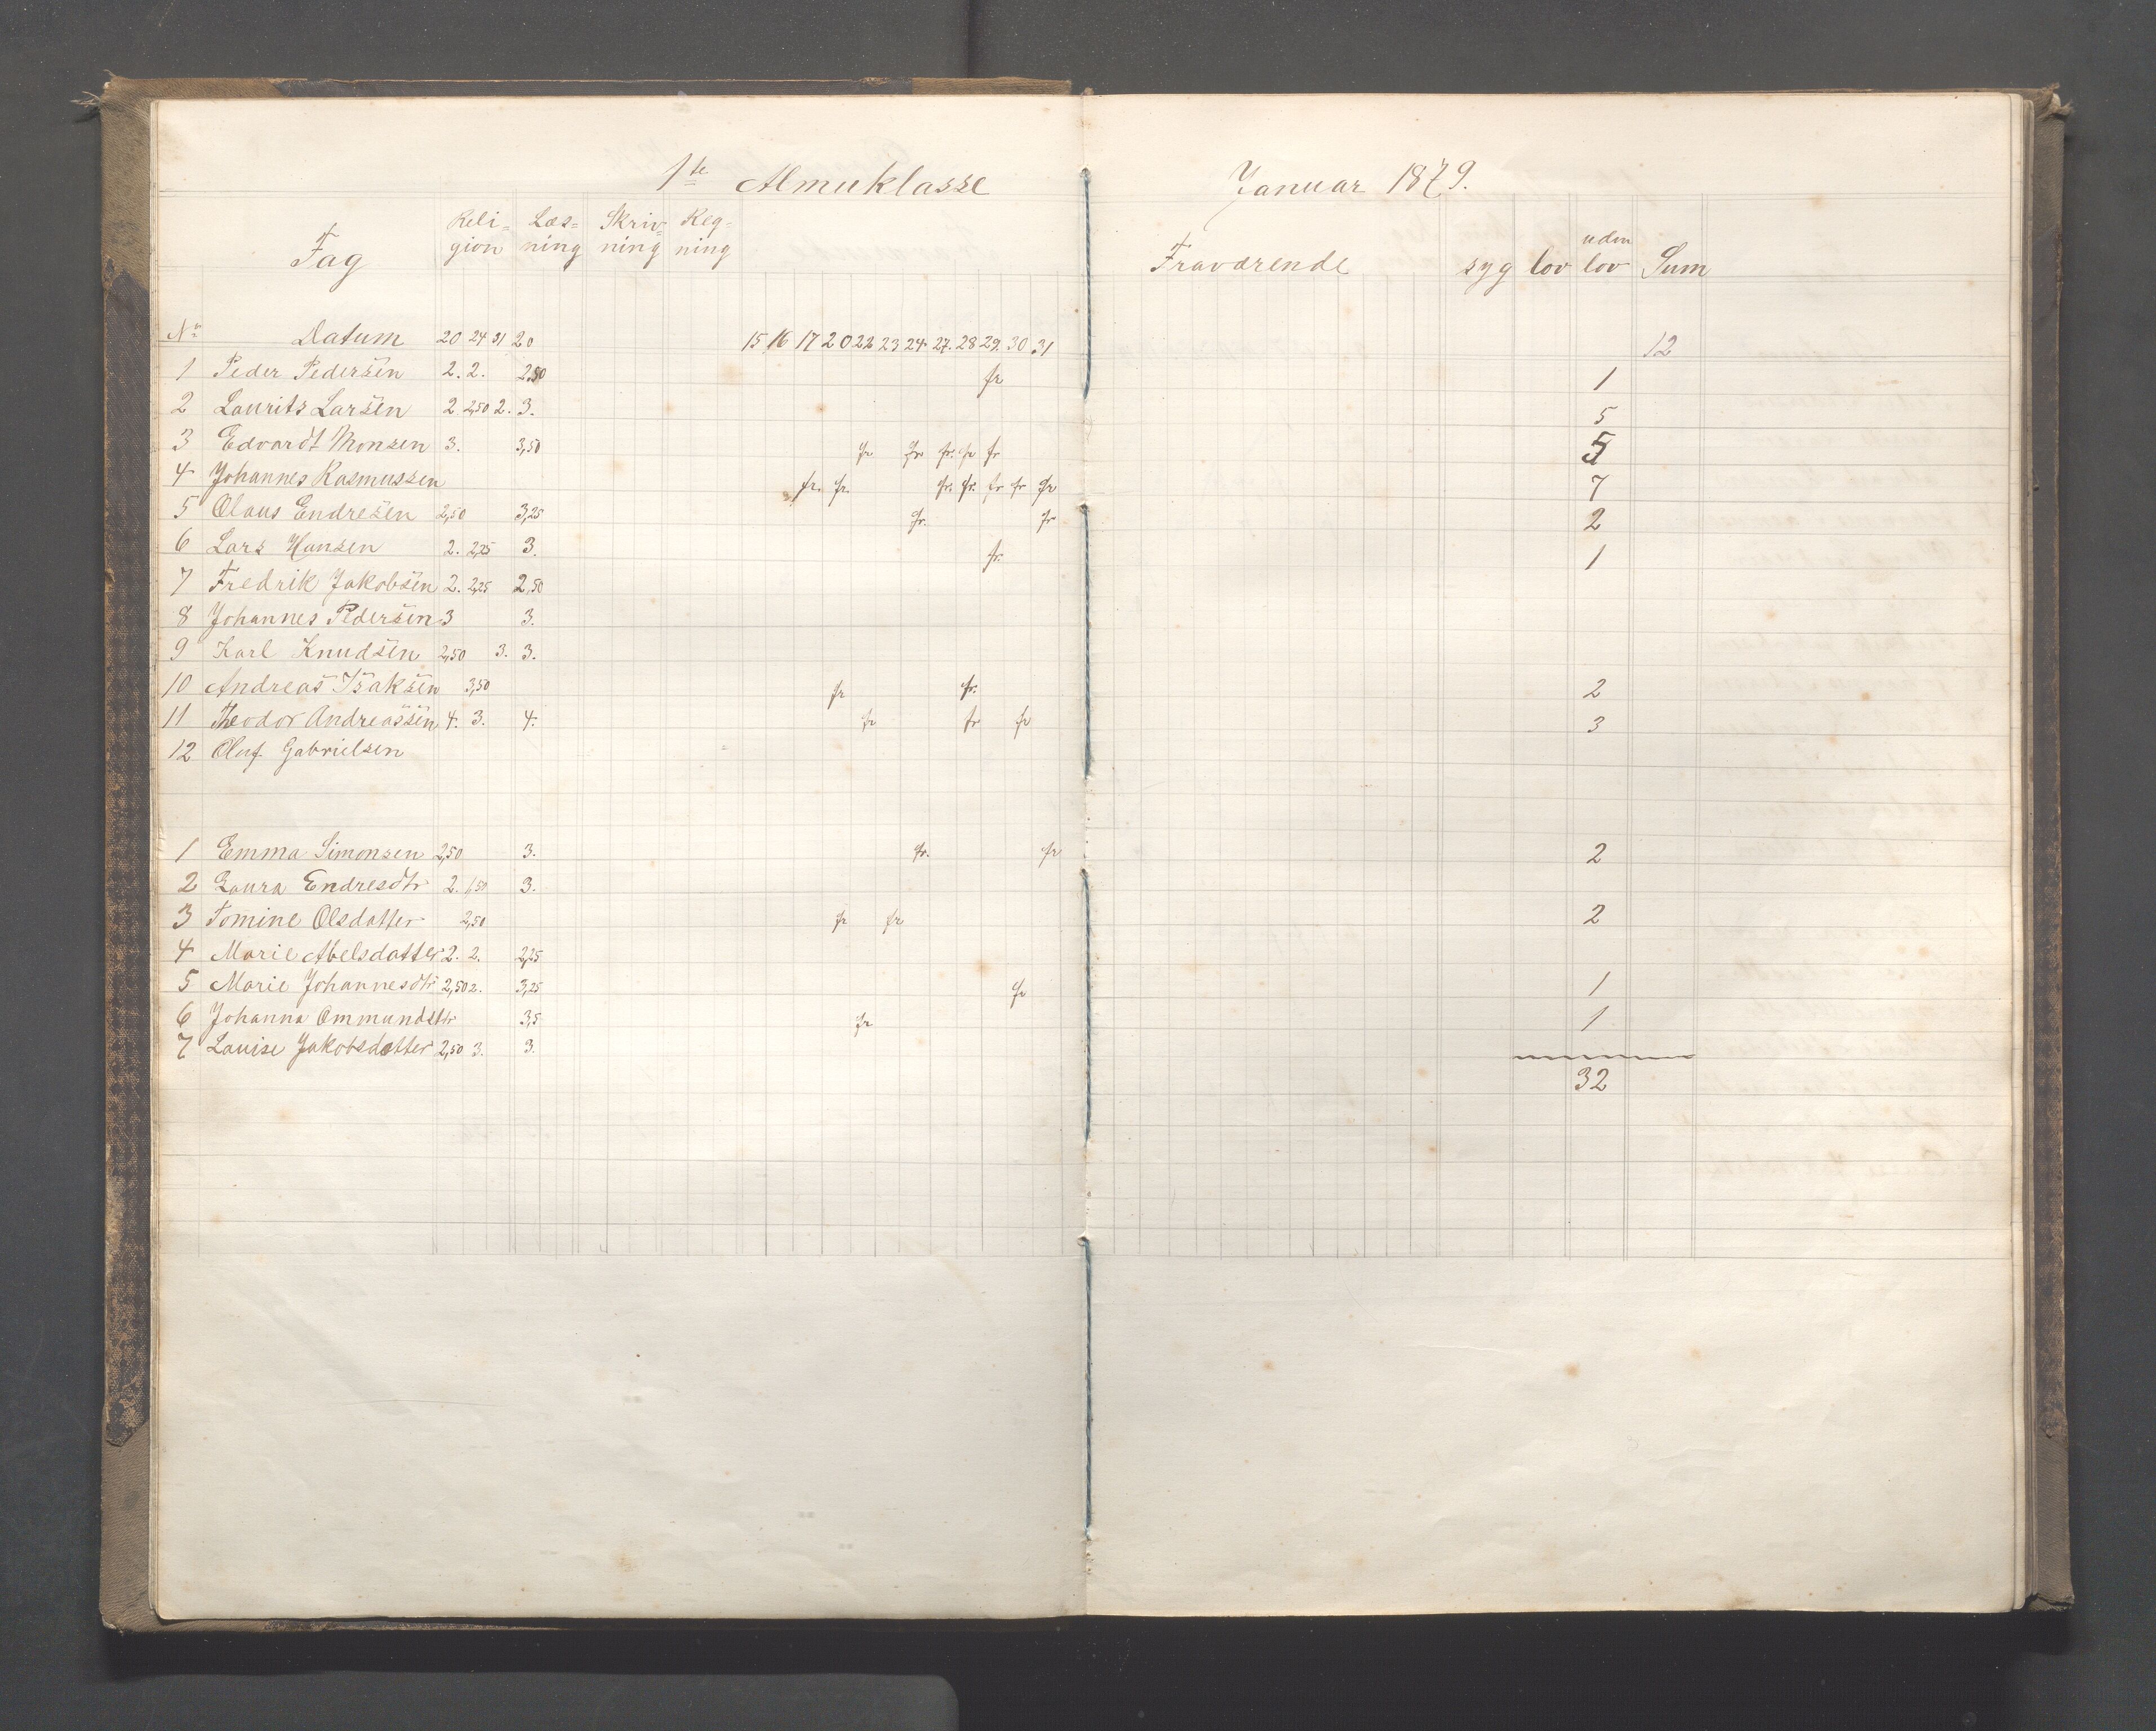 1ste Almueklasse Januar 1879.
Fag Reli= gion Læs= ning Skriv= ning Reg= ning Fraværende syg lov uden lov Sum
No Datum 20 24 31 20 15 16 17 20 22 23 24 27. 28 29. 30 31 12
1 Peder Pedersen 2. 2. 2,50 fr 1
2 Laurits Larsen 2 2,50 2. 3. 5
3 Edvardt Monsen 3. 3,50 fr fr fr. fr fr 5
4 Johannes Rasmussen fr. fr. fr. fr. fr fr fr 7
5 Olaus Endresen 2,50 3,25 fr. fr 2
6 Lars Hansen 2. 2,25 3. fr. 1
7 Fredrik Jakobsen 2. 2,25 2,50
8 Johannes Pedersen 3 3.
9 Karl Knudsen 2,50 3. 3.
10 Andreas Isaksen 3,50 fr fr. 2
11 Theodor Andreassen 4. 3. 4. fr fr fr 3
12 Oluf Gabrielsen
1 Emma Simonsen 2,50 3. fr. fr 2
2 Laura Endresdtr 2. 1,50 3.
3 Tomine Olsdatter 2,50 fr fr 2
4 Marie Abelsdatter 2. 2. 2,25
5 Marie Johannesdtr 2,50 2. 3,25 fr 1
6 Johanna Ommundsdtr 3,5 fr 1
7 Louise Jakobsdatter 2,50 3. 3.
32